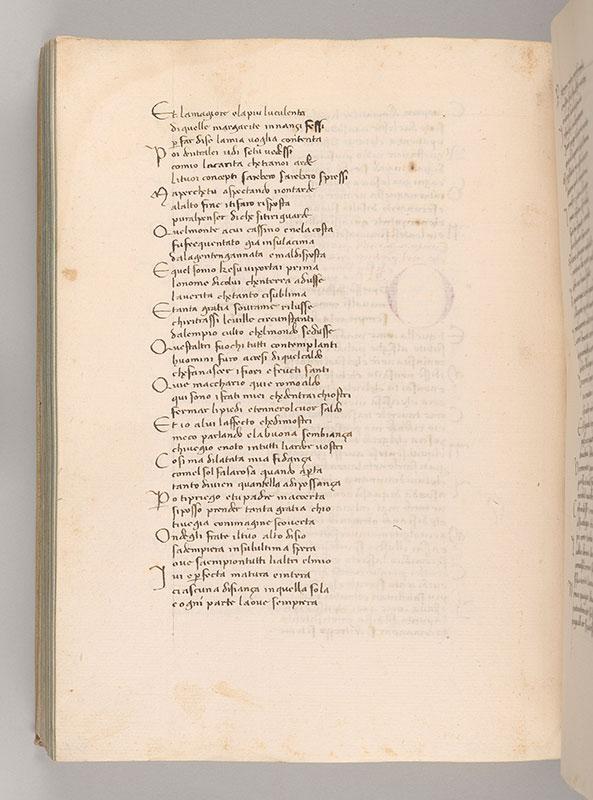 Et lamagiore elapiu luculenta
diquelle margarite innançi fessi
p far dise lamia voglia contenta
Poi dentralei udi setu vedessi
comio lacarita chetranoi arde
lituoi concepti sarebero sarebero spressi
Maperchetu aspectando nontarde
alalto fine itifaro risposta
puralpenser dichesitiriguarde
Quelmonte acui cassino enela costa
fufrequentato gia insulacima
dalagentengannata emaldisposta
Equel sonio kesu viportai prima
lonome dicolui chenterra adusse
laverita chetanto cisublima
Etanta gratia sovrame rilusse
chiritrassi leville circunstanti
dalempio culto chelmondo sedusse
Questaltri fuochi tutti contemplanti
huomini furo accesi diquelcaldo
chefanascer ifiori efructi santi
Quie macchario quie romoaldo
qui sono ifrati miei chedentraichiostri
fermar lipiedi etennerolcuor saldo
Et io alui laffecto chedimostri
meco parlando elabuona sembiança
chiveggio enoto intutti liardor vostri
Cosi ma dilatata mia fidança
comelsol falarosa quando apta
tanto divien quantella adipossança
Po tipriego etupadre maccerta
siposso prender tanta gratia chio
tivegia conimagine scoverta
Ondegli frate iltuo alto disio
sadempiera insulultima spera
ove sacmpiontutti lialtri elmio
Ivi e pfecta matura eintera
ciascuna disiança inquella sola
eogni parte laove semprera